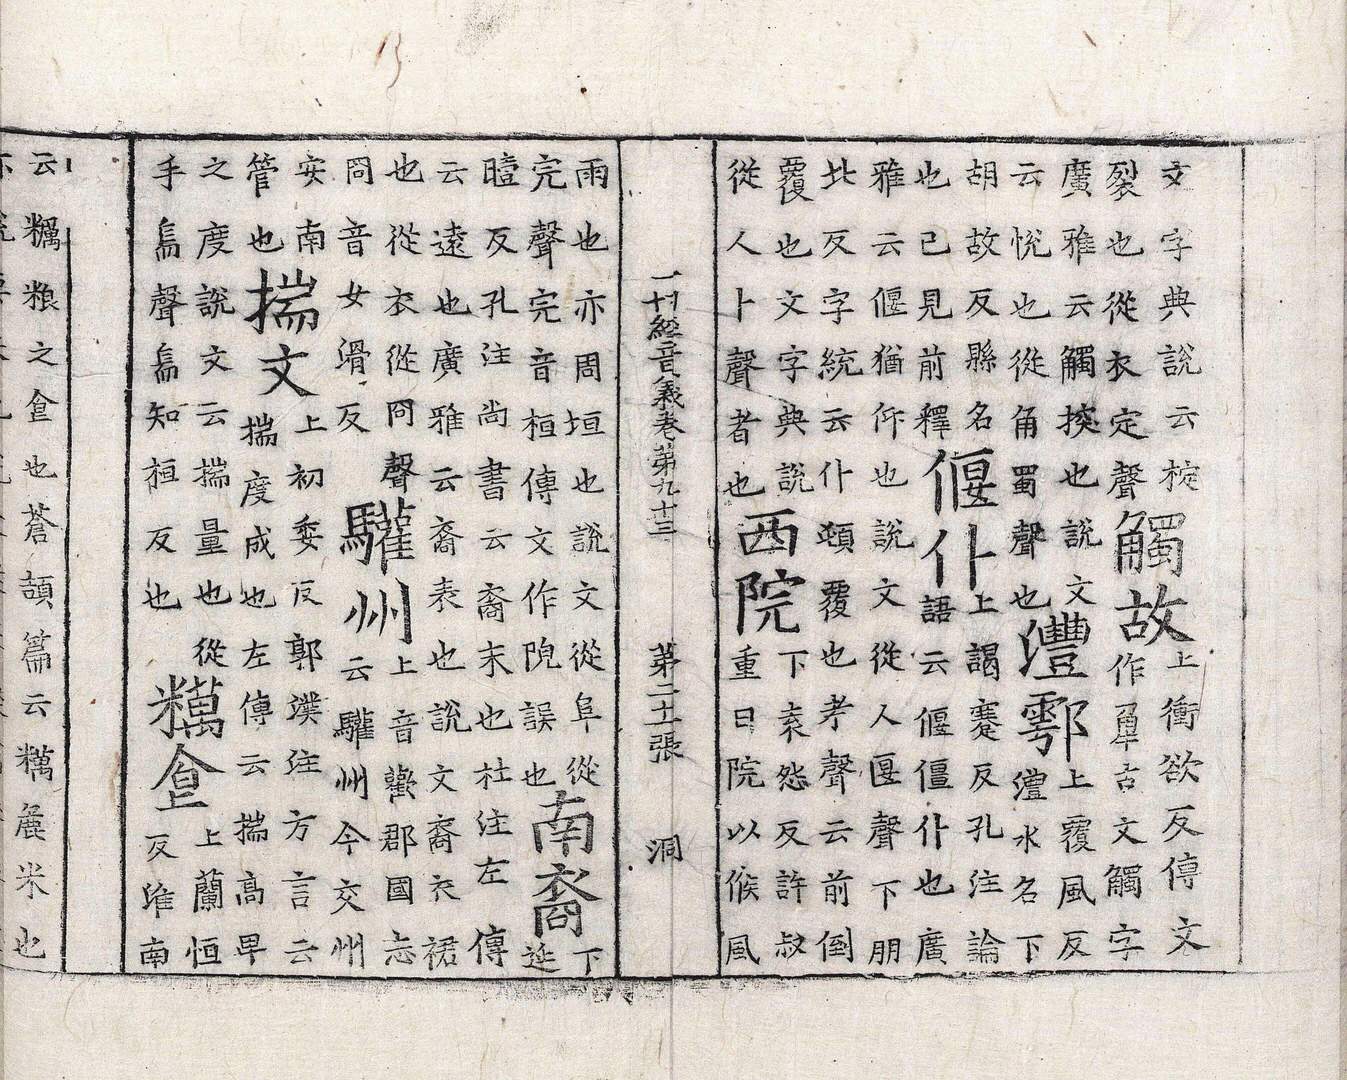 文字典說云
裂也從衣定聲
觸故
上衝欲反傳文
作古文觸字
廣雅云觸揬也說文
云悅也從角蜀聲也
灃鄠
上覆風反
灃水名下
胡故反縣名
也已見前釋
偃仆
上謁蹇反孔注論
語云偃僵仆也廣
雅云偃猶仰也說文從人匽聲下朋
北反字統云仆頓覆也考聲云前倒
覆也文字典說
從人卜聲者也
西院
下袁怨反許叔
重曰院以候風
一切經音義卷第九十三 第二十張 洞
雨也亦周垣也說文從阜從
完聲完音桓傳文作院誤也
南裔
下
延
曀反孔注尚書云裔末也杜注左傳
云遠也廣雅云裔表也說文裔衣裾
也從衣從冏聲
冏音女滑反
驩州
上音歡郡國志
云驩州今交州
安南
管也
揣文
上初委反郭璞注方言云
揣度成也左傳云揣高卑
之度說文云揣量也從
手耑聲耑知桓反也
糲食
上蘭恒
反淮南
云糲粮之食也蒼頡篇云糲麁米也